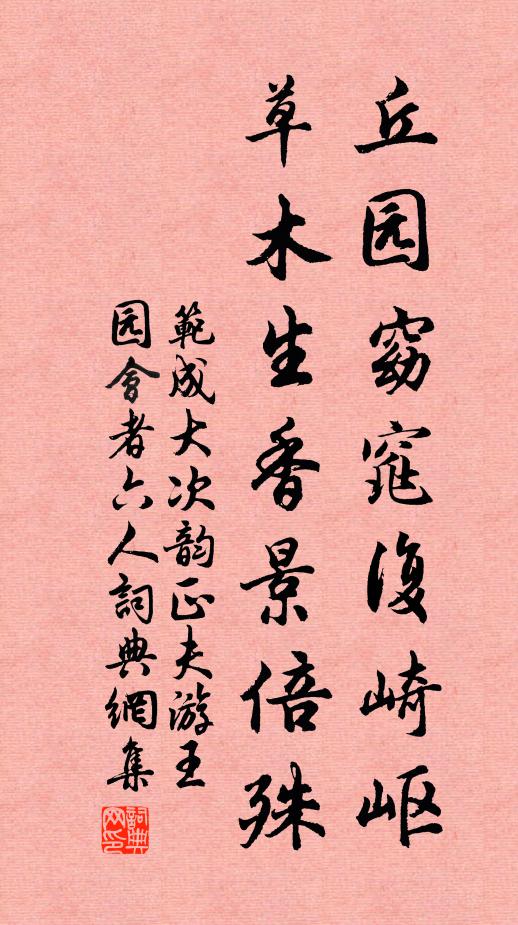 丘园窈窕復崎岖
草木生香景倍殊
範成大次韵正夫游王
园會者六人詞典網集
詞典网印